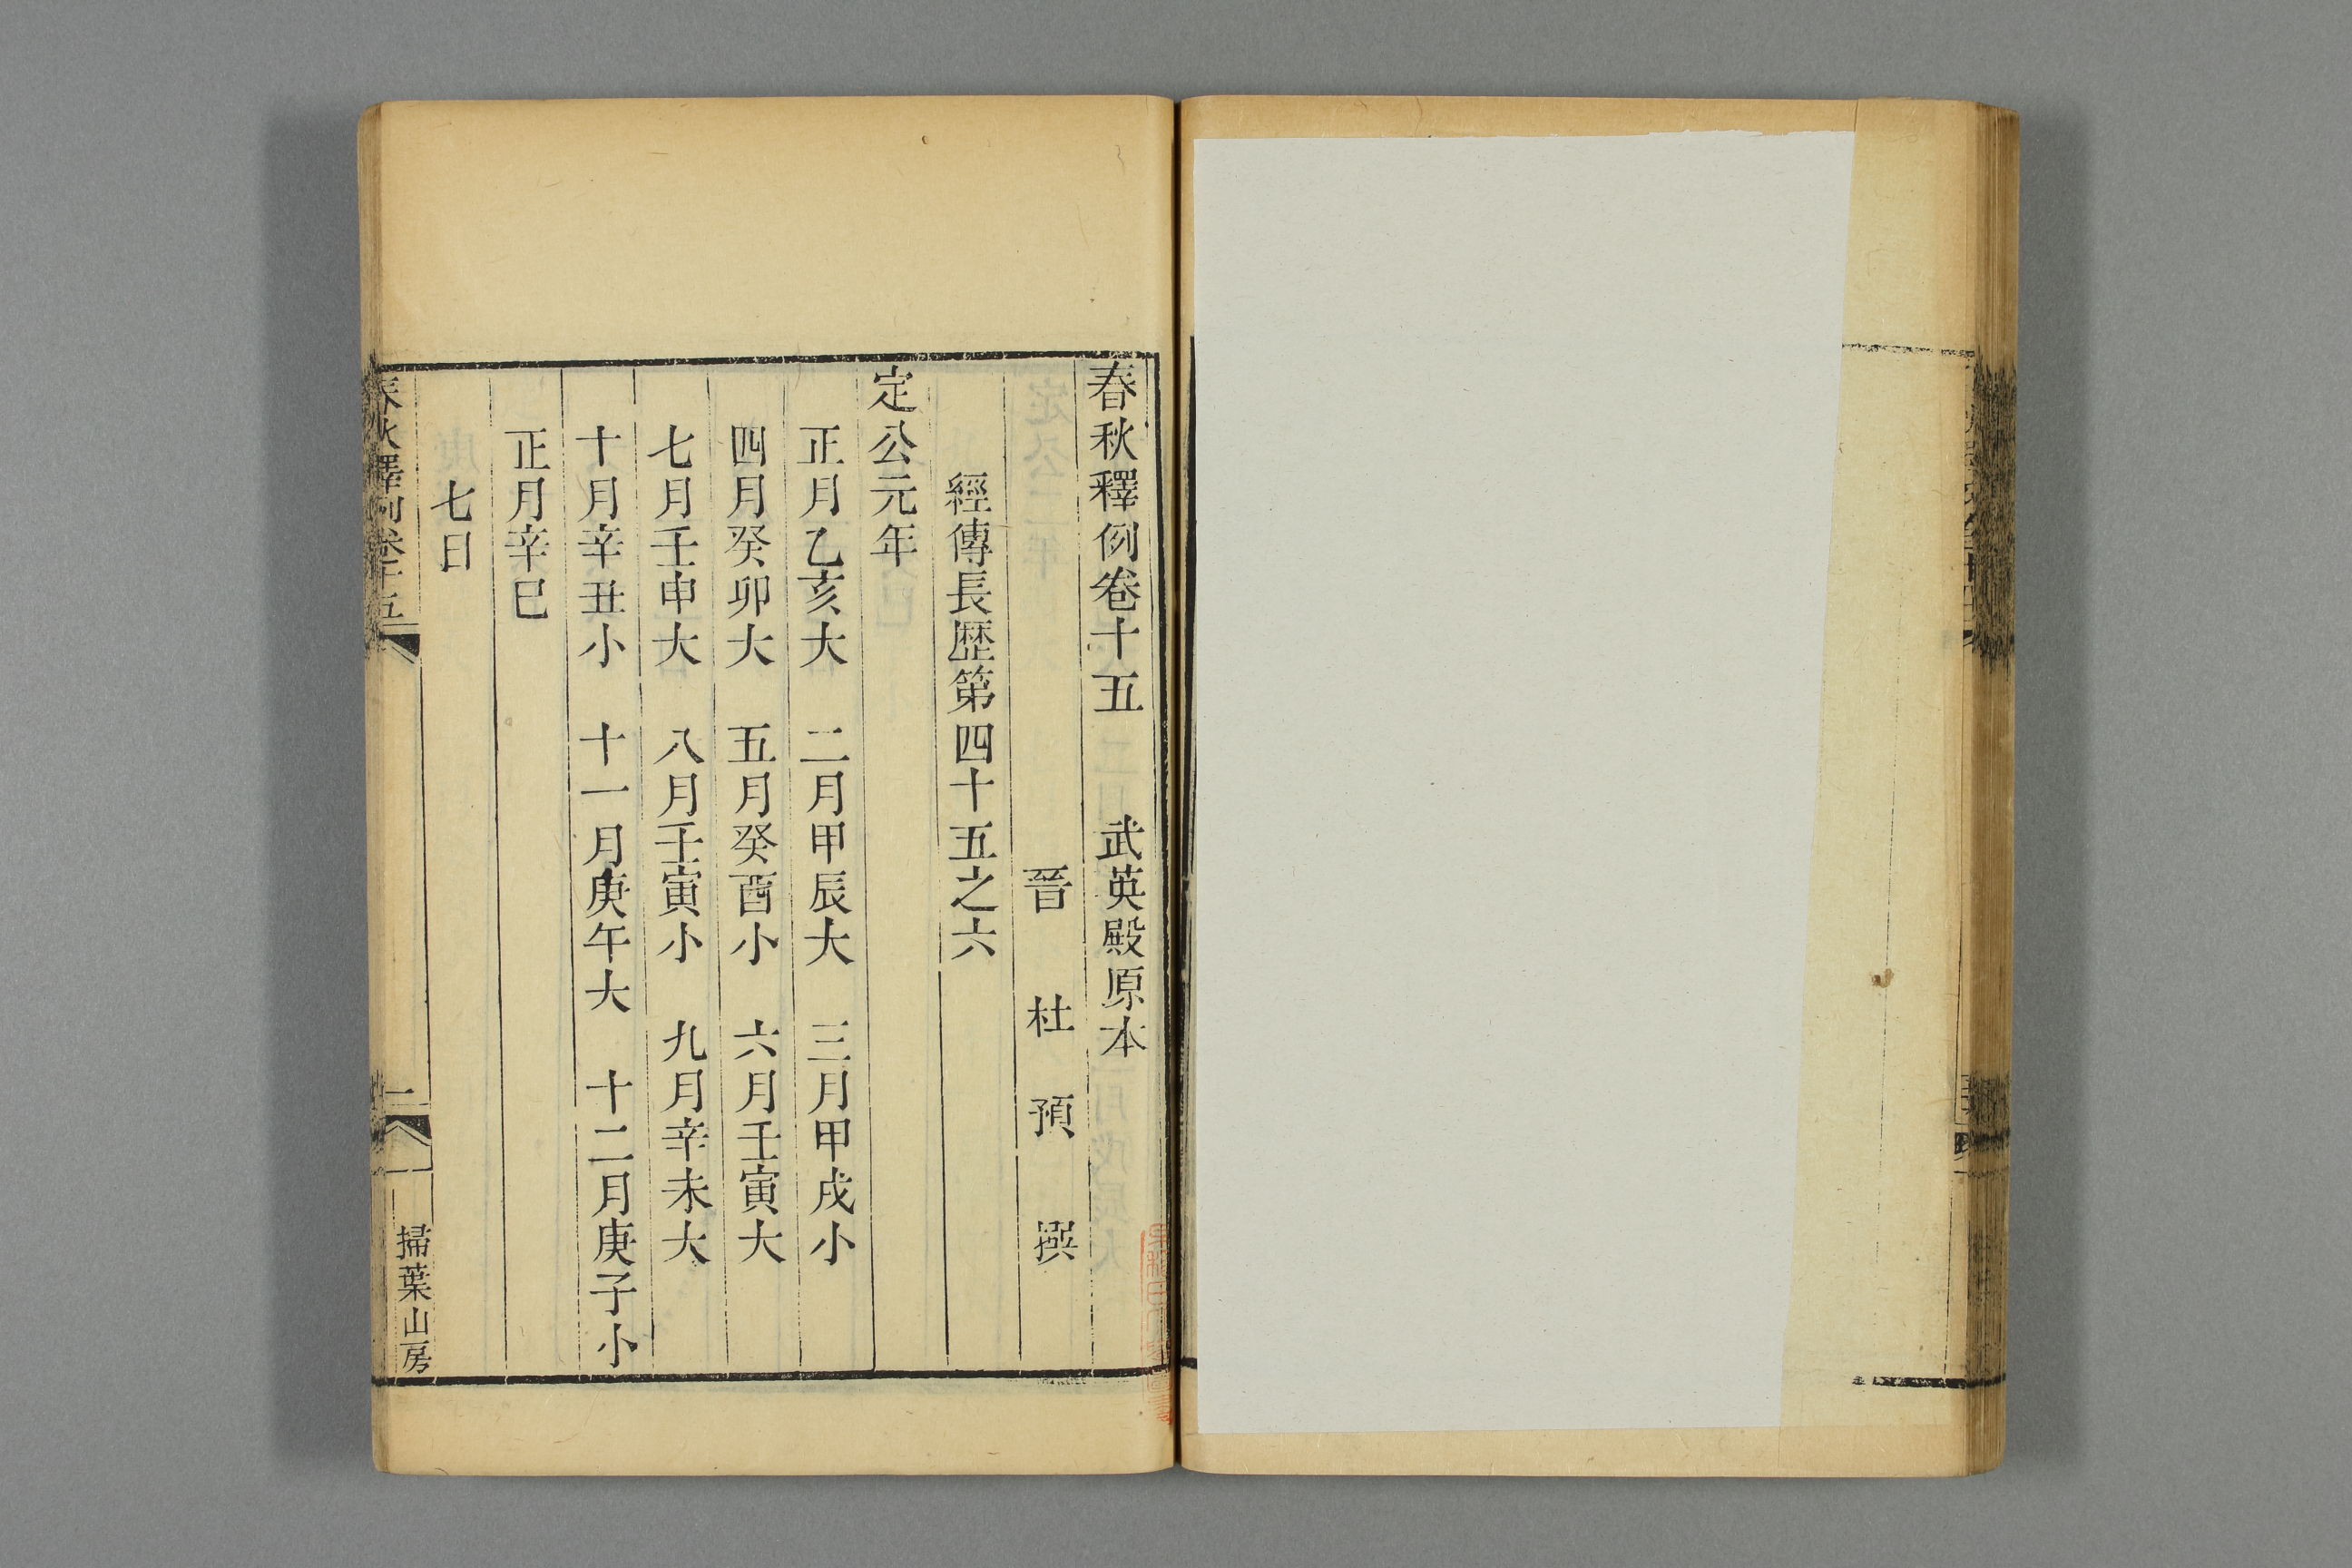 春秋釋例卷十五　武英殿原本
晉　杜　預　撰
經傳長歴第四十五之六
定公元年
正月乙亥大　二月甲辰大　三月甲戌小
四月癸卯大　五月癸酉小　六月壬寅大
七月壬申大　八月壬寅小　九月辛未大
十月辛丑小　十一月庚午大　十二月庚子小
正月辛巳
七日
春秋釋例卷十五　一　掃葉山房